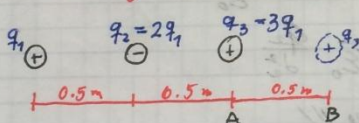 q₁ q₂ = 2q₁ q₃ = 3q₁
+ − + + q₃
0.5m 0.5m 0.5m
A B